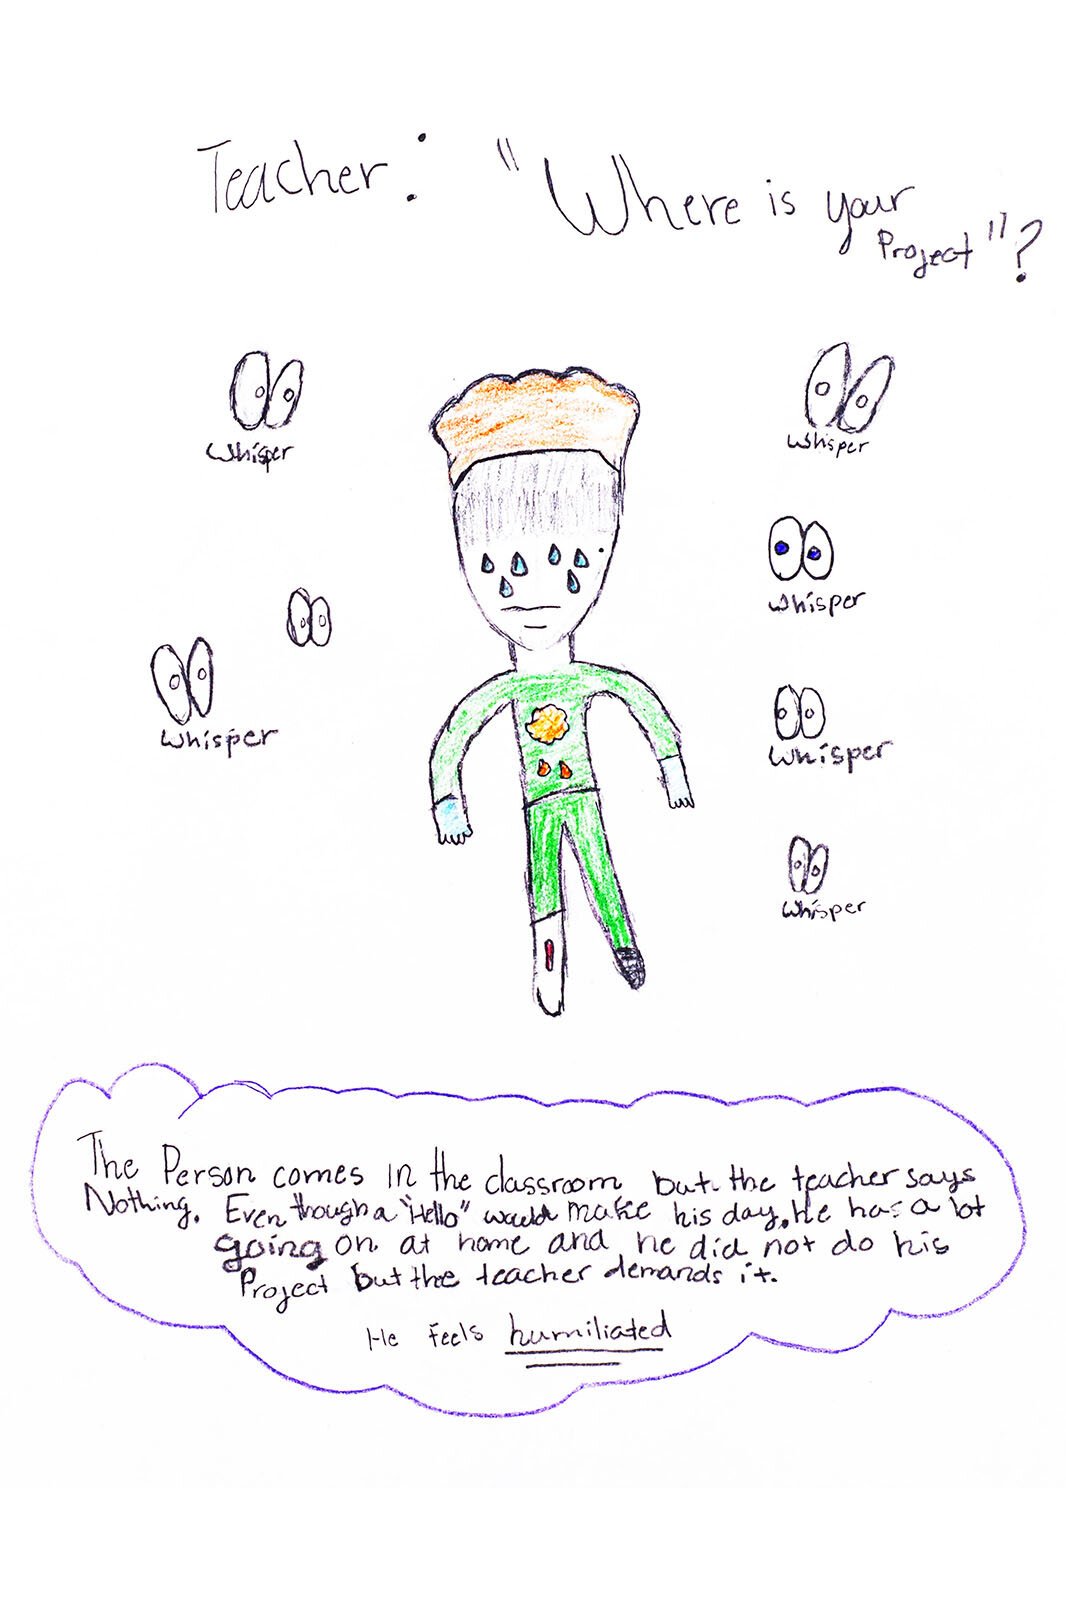 Teacher: "Where is your
Project"?
Whisper
Whisper
Whisper
Whisper
Whisper
Whisper
The Person comes in the classroom but the teacher says
Nothing. Even though a "Hello" would make his day. He has a lot
going on at home and he did not do his
Project but the teacher demands it.
He feels humiliated